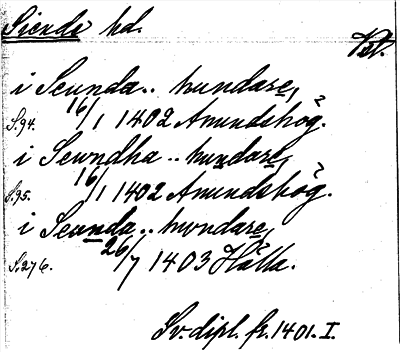 Siende hd.
Vstl.
i Seunda.. hundare,
S.94. 16/1 1402 Amundshög?.
i Sewndha .. hundare,
S.95. 16/1 1402 Amundshög?.
i Seunda .. hundare,
S.276. 26/7 1403 Hälla.
Sv. dipl. fr. 1401. I.